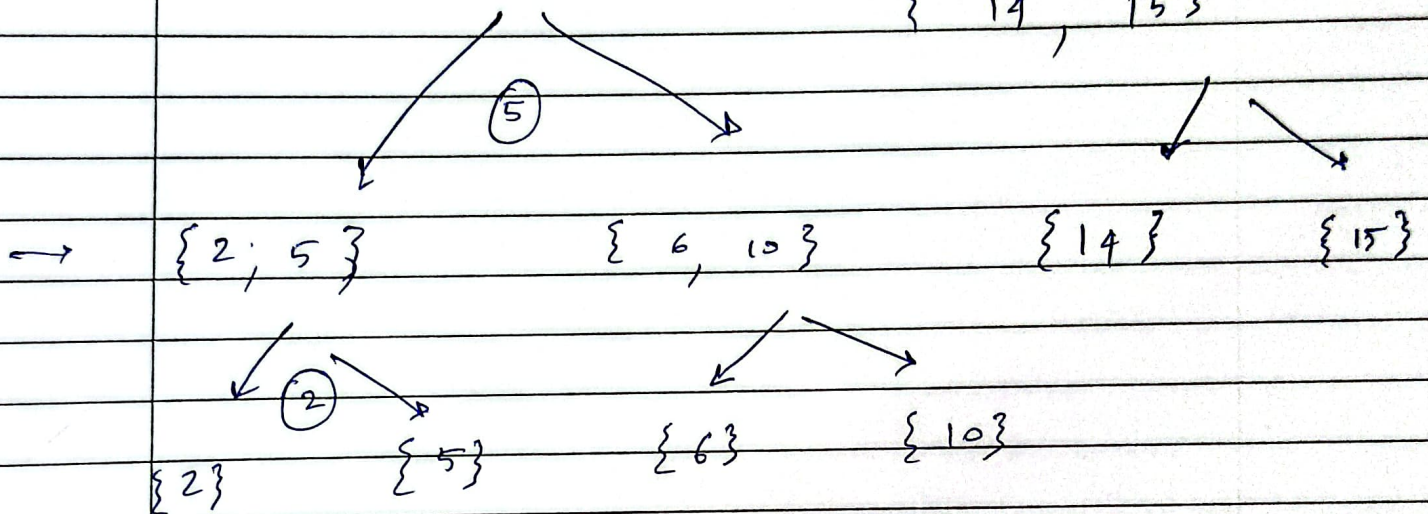 { 14 , 15 }
5
→ { 2 ; 5 } { 6, 10 } { 14 } { 15 }
2
{ 5 } { 6 } { 10 }
{ 2 }